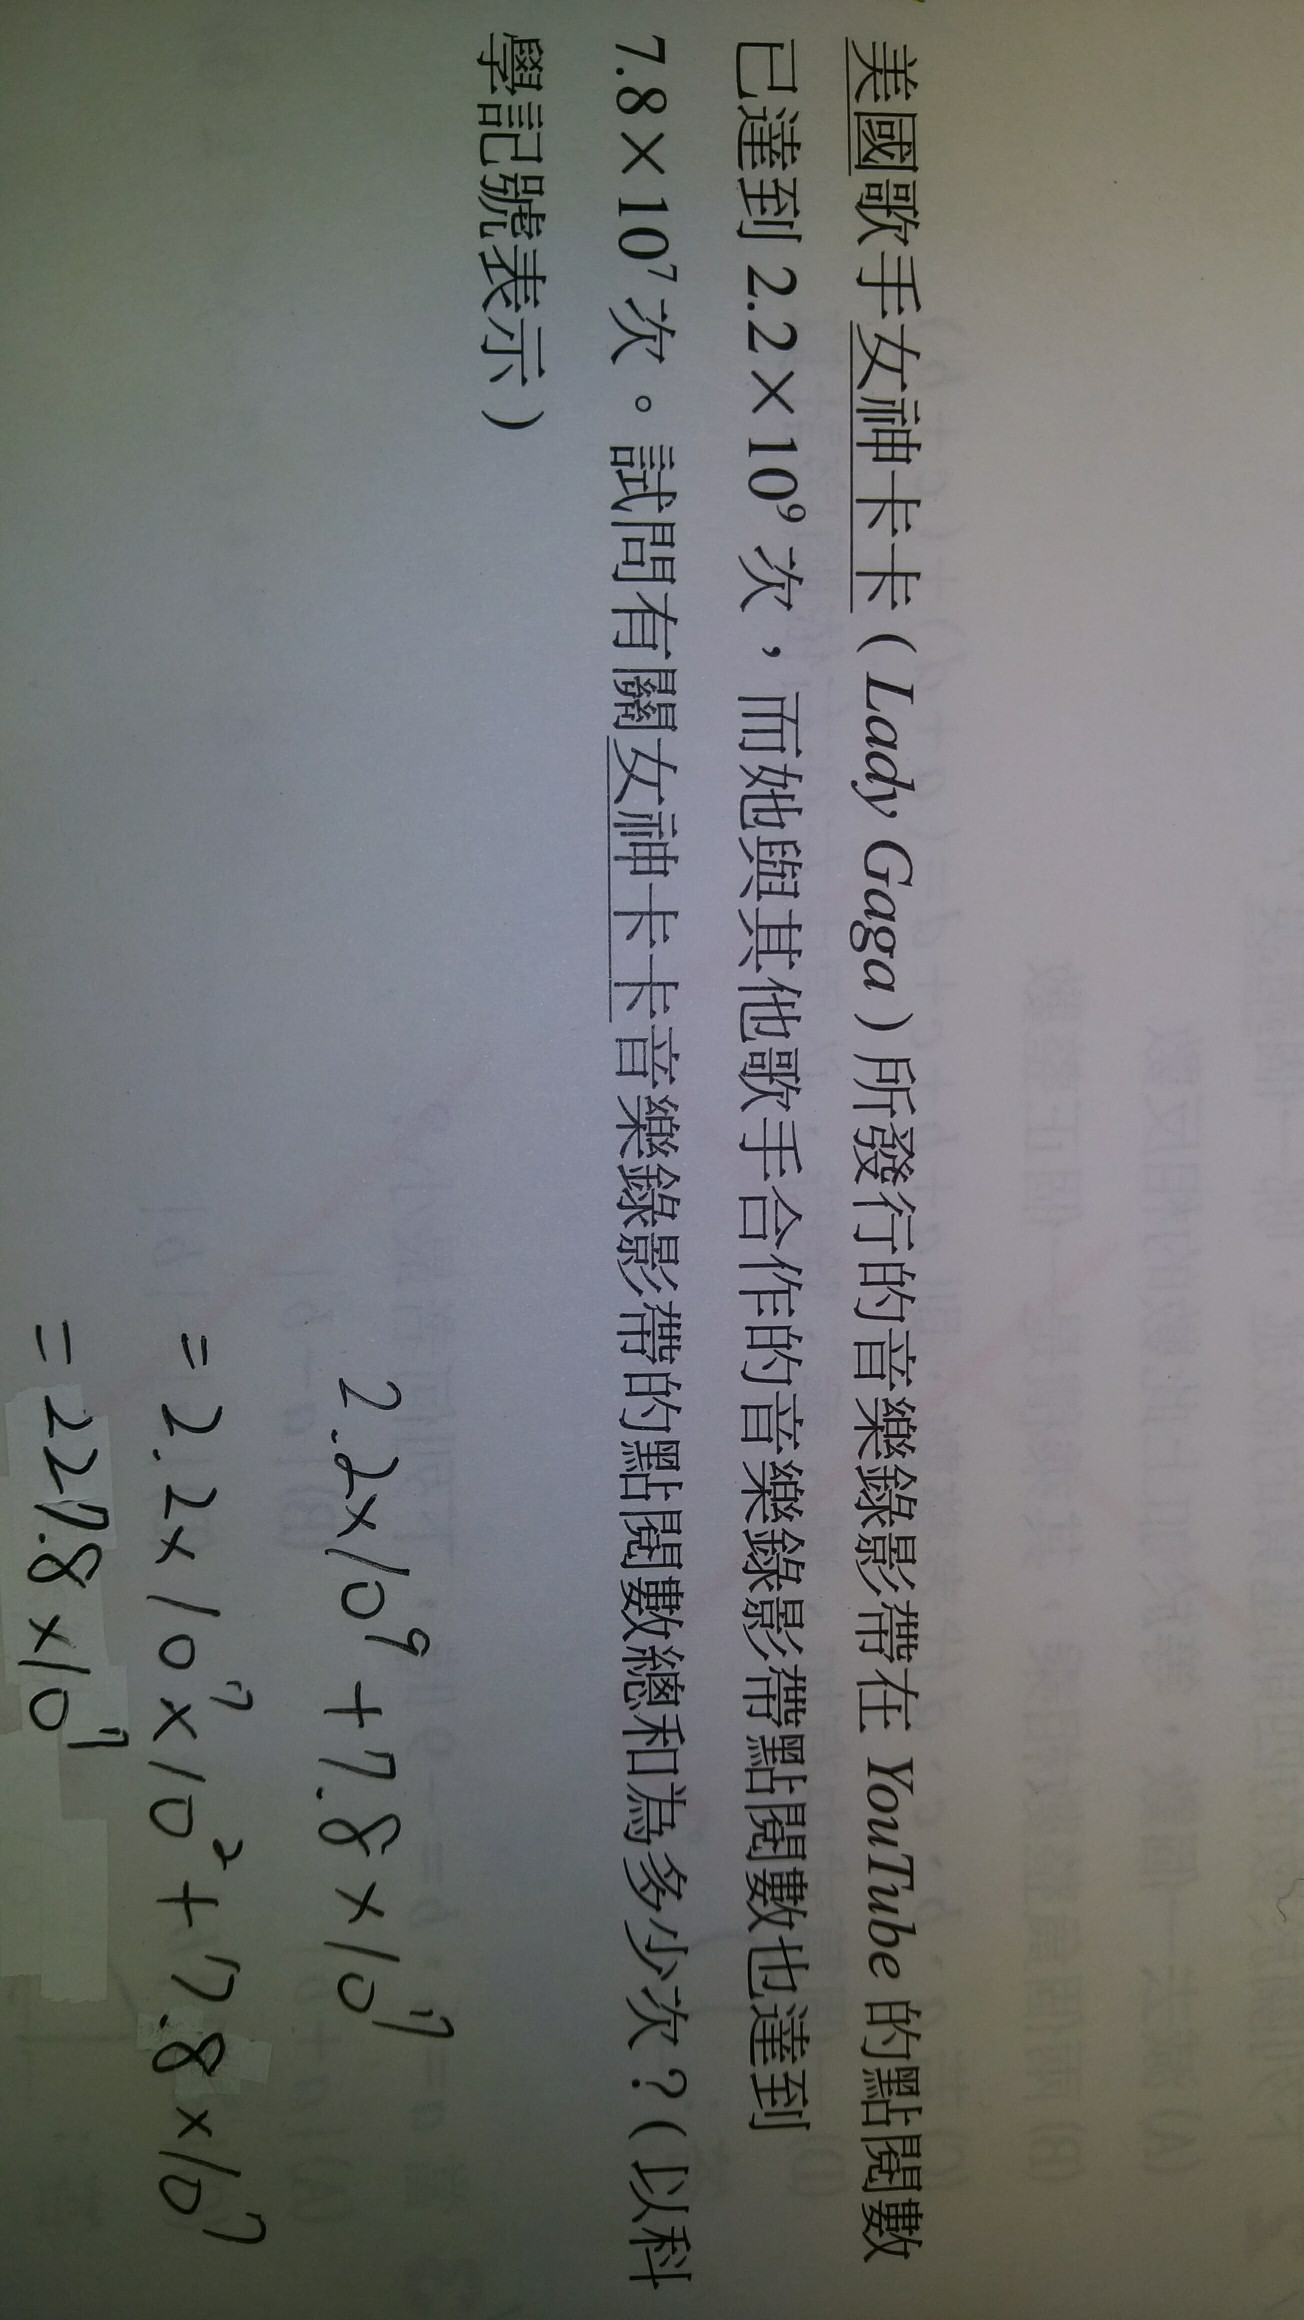 美國歌手女神卡卡（Lady Gaga）所發行的音樂錄影帶在 YouTube 的點閱數
已達到 2.2×10⁹ 次，而她與其他歌手合作的音樂錄影帶點閱數也達到
7.8×10⁷ 次。試問有關女神卡卡音樂錄影帶的點閱數總和為多少次？（以科
學記號表示）
2.2×10⁹+7.8×10⁷
=2.2×10⁷×10²+7.8×10⁷
=227.8×10⁷